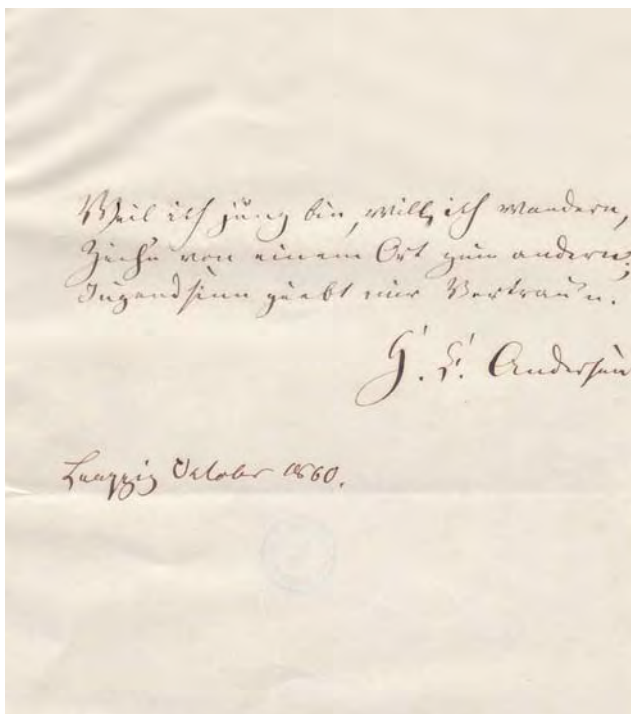 Weil ich jung bin, will ich wandern,
Ziehe von einem Ort zum andern;
Jugendsinn giebt mir Vertrau'n.
H. C. Andersen
Leipzig October 1860.